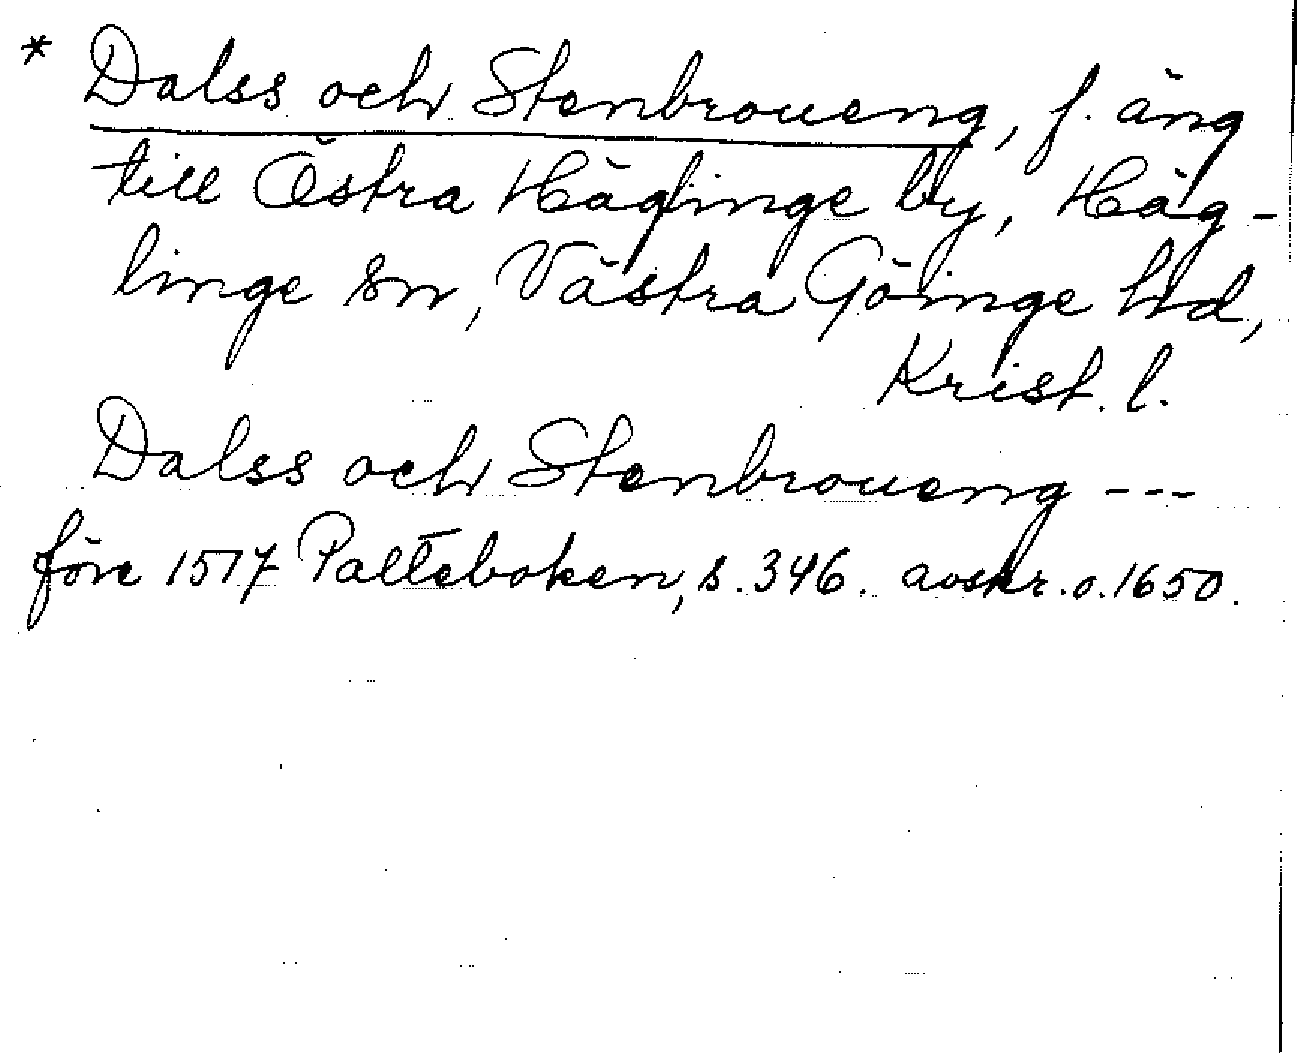 * Dalss och Stenbroueng, f. äng
till Östra Häglinge by, Häg-
linge sn, Västra Göinge hd,
Krist. l.
Dalss och Stenbroueng ---
före 1517 Palteboken, s. 346. avskr. o. 1650.